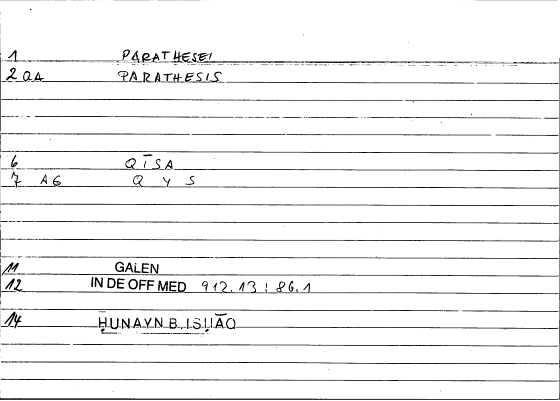 1 PARATHESEI
2 QA PARATHESIS
6 QĪSA
7 AG Q Y S
11 GALEN
12 IN DE OFF MED 912.13 : 86.1
14 ḤUNAYN B. ISḤĀQ